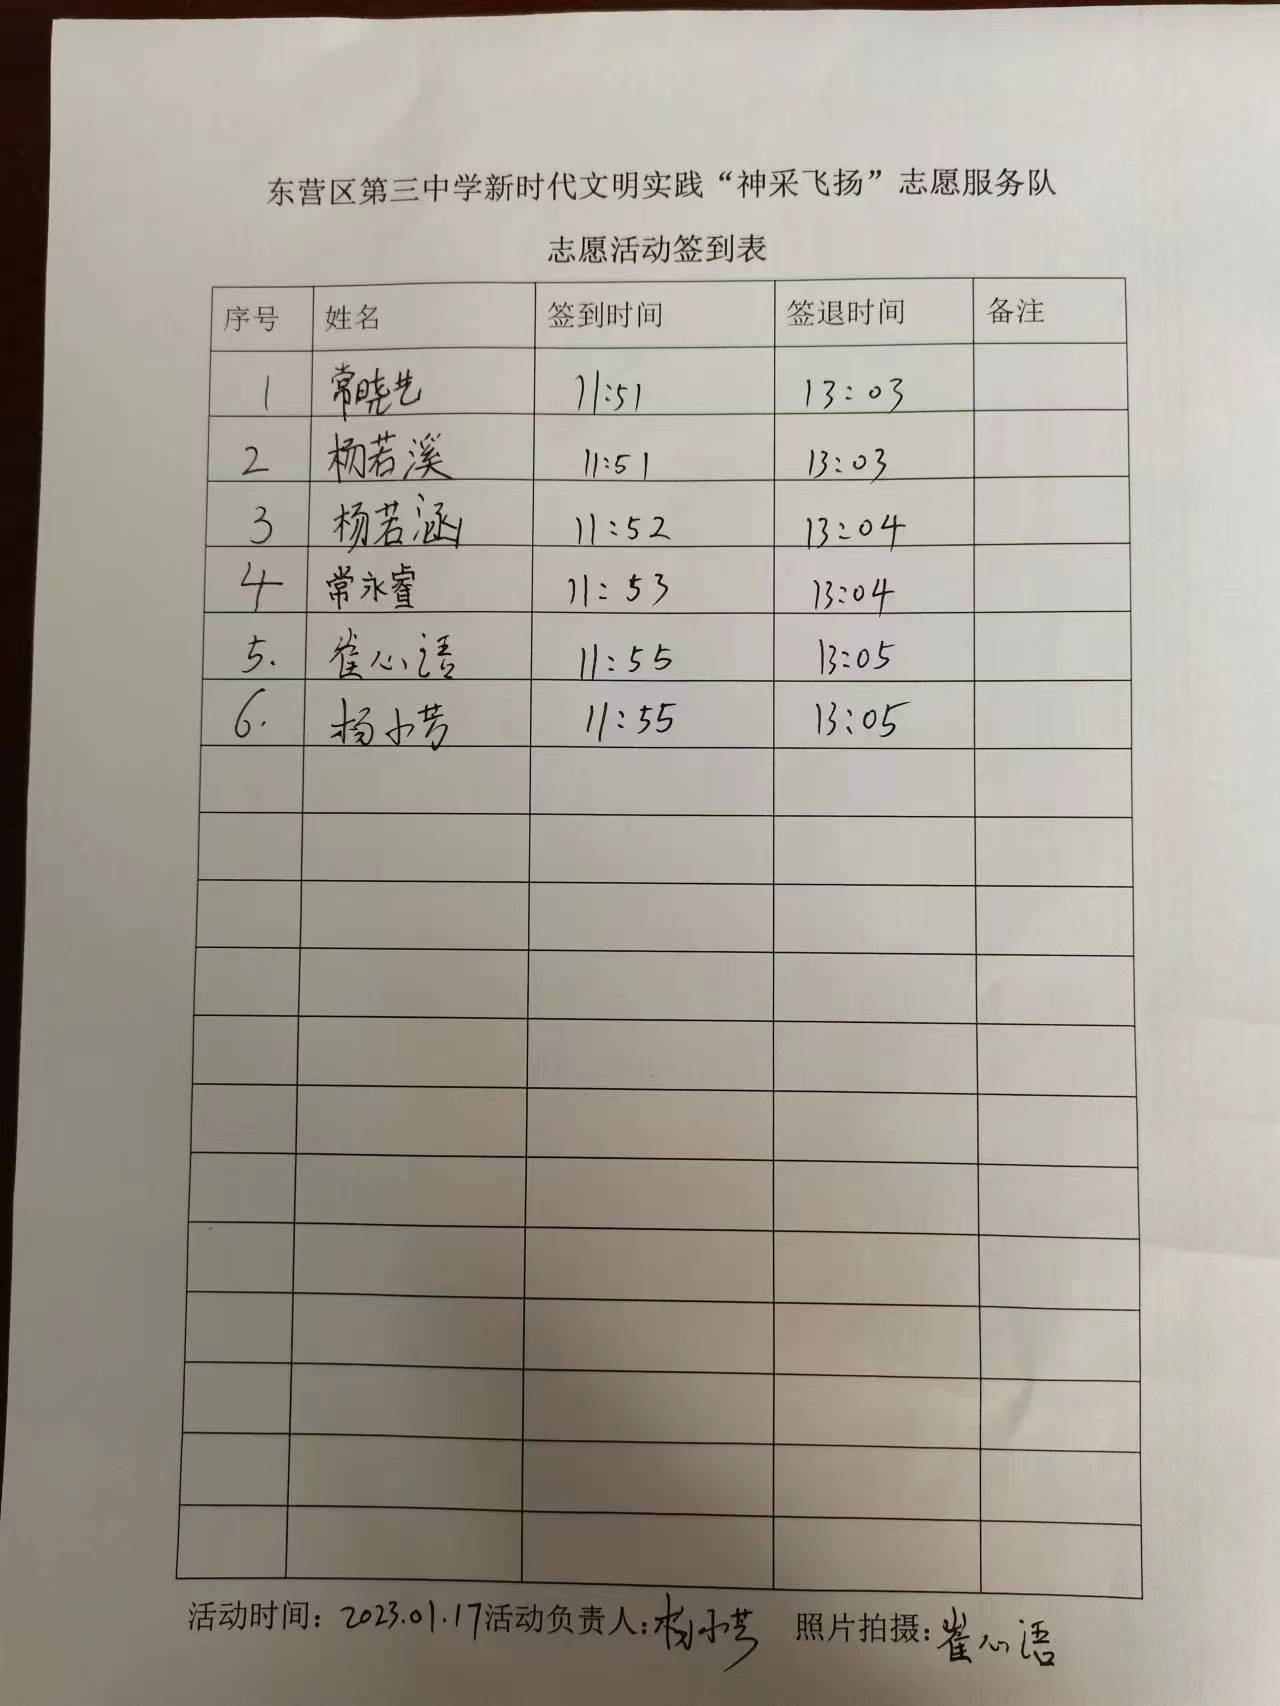 东营区第三中学新时代文明实践“神采飞扬”志愿服务队
志愿活动签到表
序号 姓名 签到时间 签退时间 备注
1 常晓艺 11:51 13:03
2 杨若溪 11:51 13:03
3 杨若涵 11:52 13:04
4 常永睿 11:53 13:04
5. 崔心语 11:55 13:05
6. 杨小芳 11:55 13:05
活动时间：2023.01.17 活动负责人：杨小芳 照片拍摄：崔心语